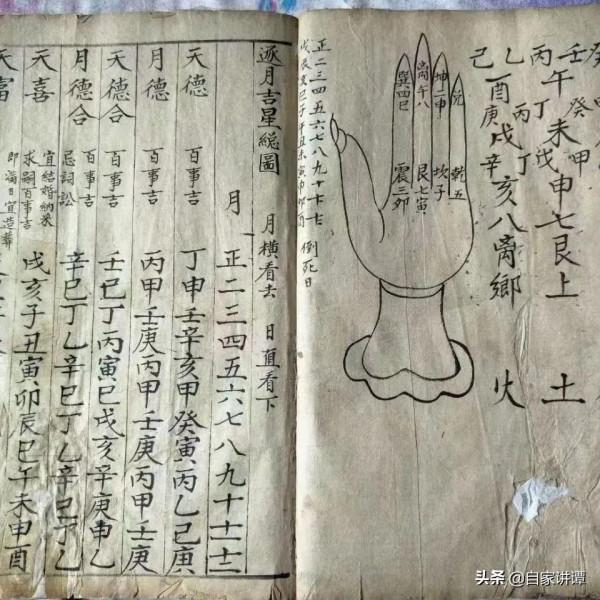 壬午未申七艮上 土
癸甲
丙丁戊
乙酉戌亥八离鄉 火
己庚辛
丙丁
兌
乾五
坤二申
坎子
离午八
艮七寅
巽四巳
震三卯
正二三四五六七八九十十一十二
戌辰亥巳子午丑未寅申卯酉 倒死日
逐月吉星總圖 月橫看去 日直看下
月 正二三四五六七八九十十一十二
天德 百事吉 丁申壬辛亥甲癸寅丙乙己庚
月德 百事吉 丙甲壬庚丙甲壬庚丙甲壬庚
天德合 百事吉 壬巳丁丙寅巳戌亥辛庚申乙
月德合 百事吉 忌詞訟 辛巳丁乙辛巳丁乙辛巳丁乙
天喜 宜結婚納采 求嗣百事吉 戌亥子丑寅卯辰巳午未申酉
天富 即滿日宜造葬
头条 @自家讲谭